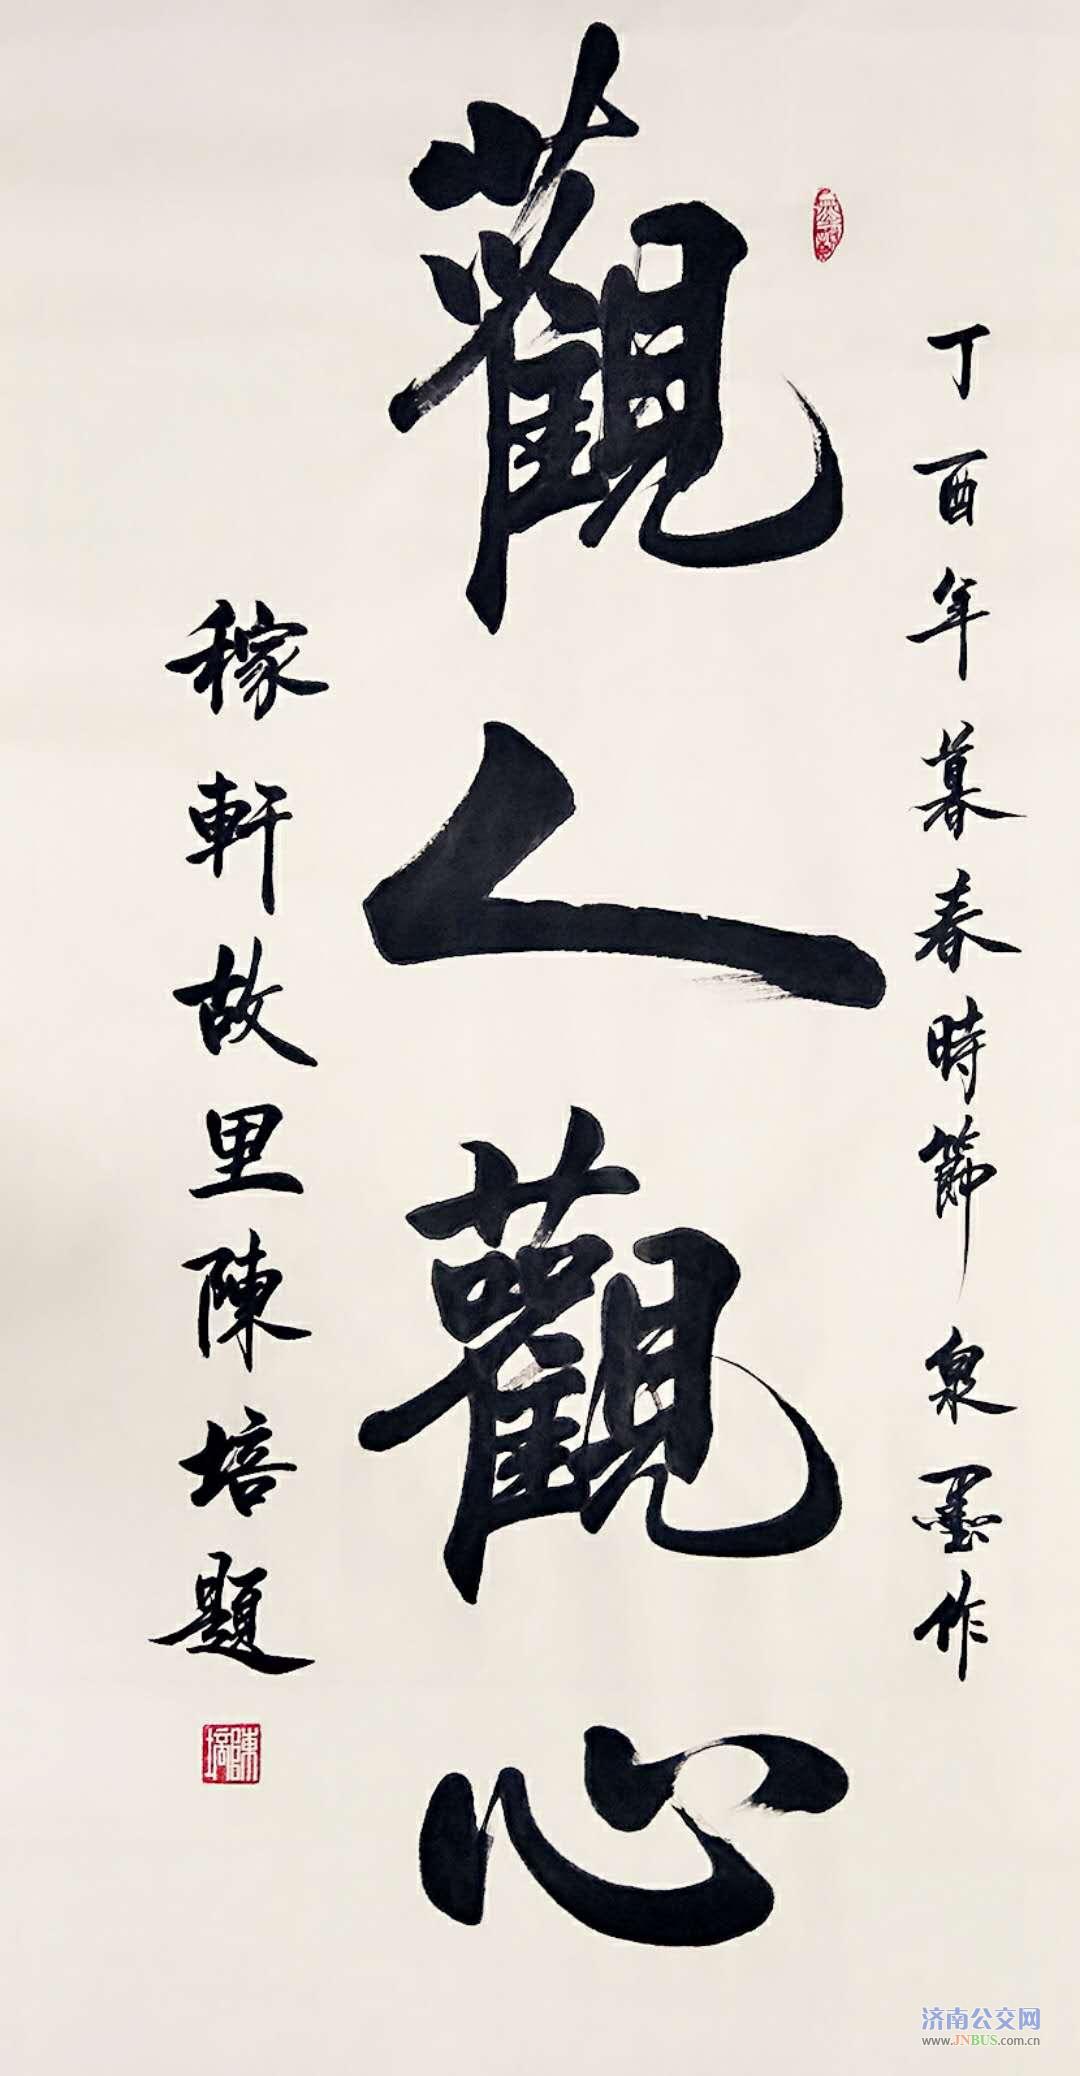 丁酉年暮春時節 泉墨作
觀人觀心
稼軒故里陳培題
陳培
济南公交网
www.JNBUS.com.cn